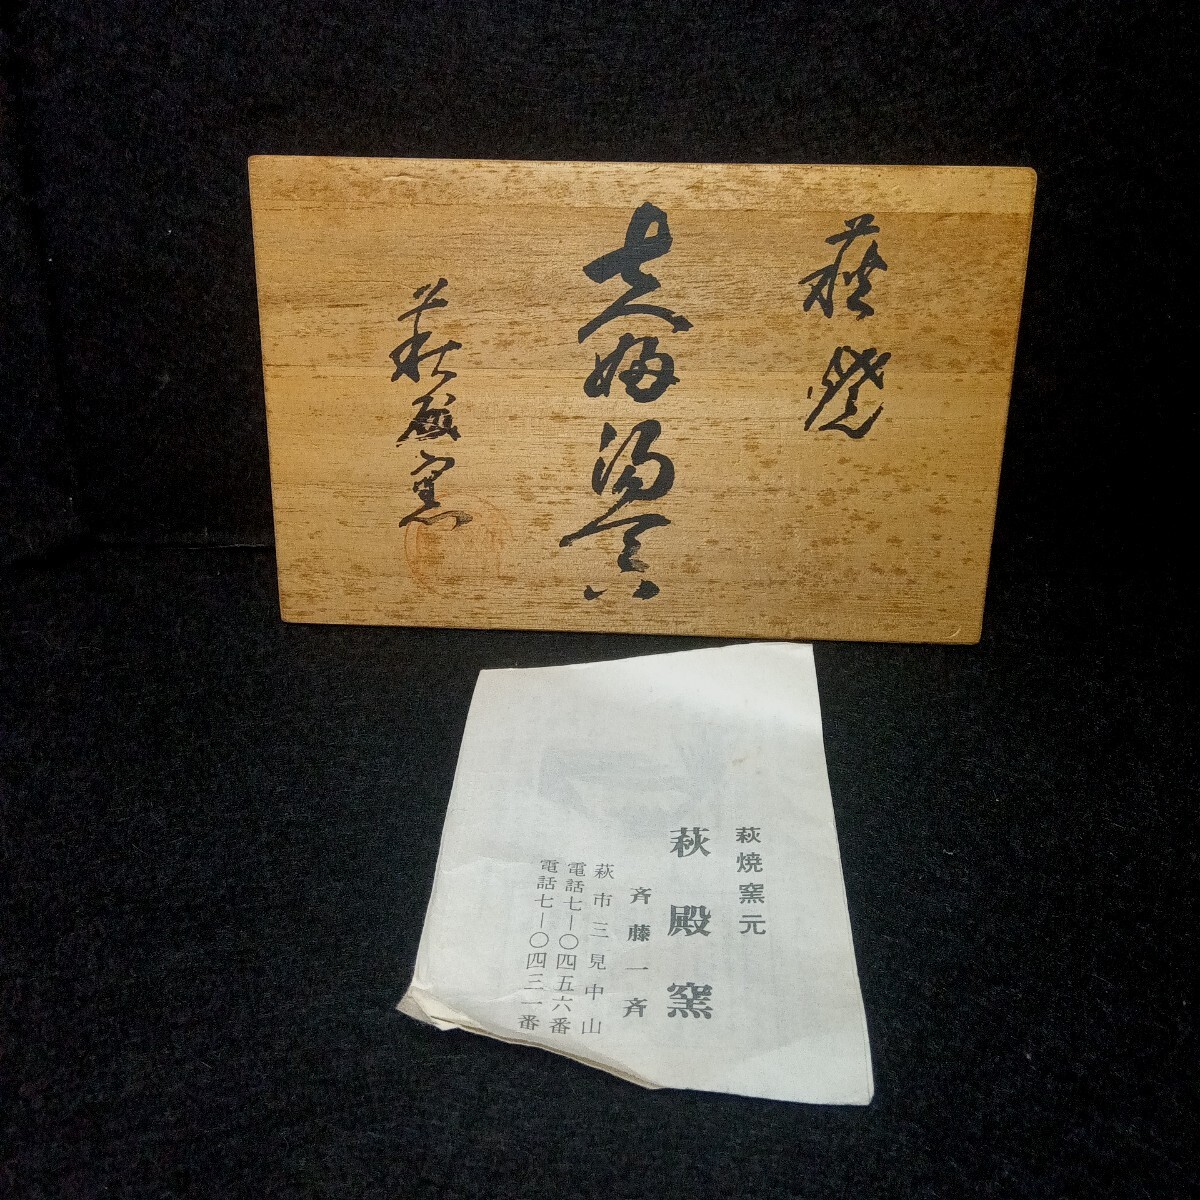 萩焼
夫婦湯呑
萩殿窯
萩焼窯元
萩殿窯
斉藤一斉
萩市三見中山
電話七―〇四五六番
電話七―〇四三一番